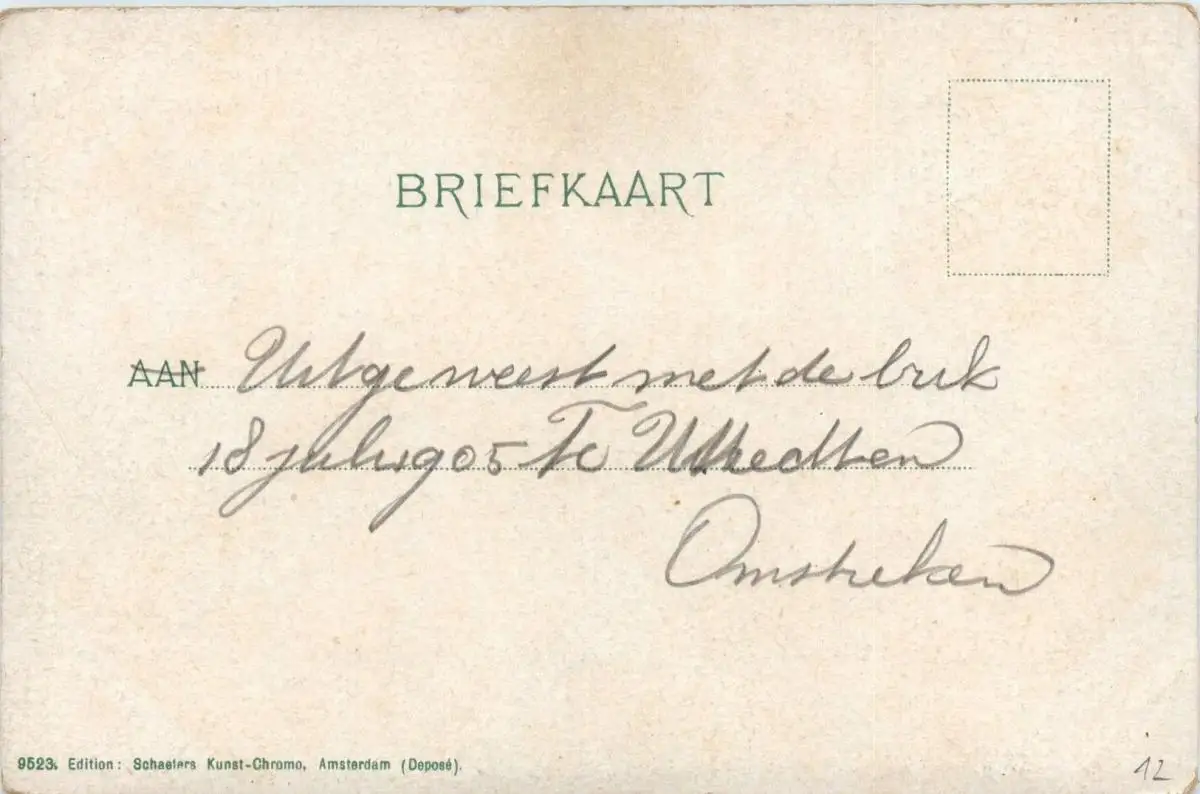 BRIEFKAART
AAN Uitgeweest met de brik
18 july 1905 Te Utrecht en
Omstreken
9523. Edition: Schaefers Kunst-Chromo, Amsterdam (Deposé).
12